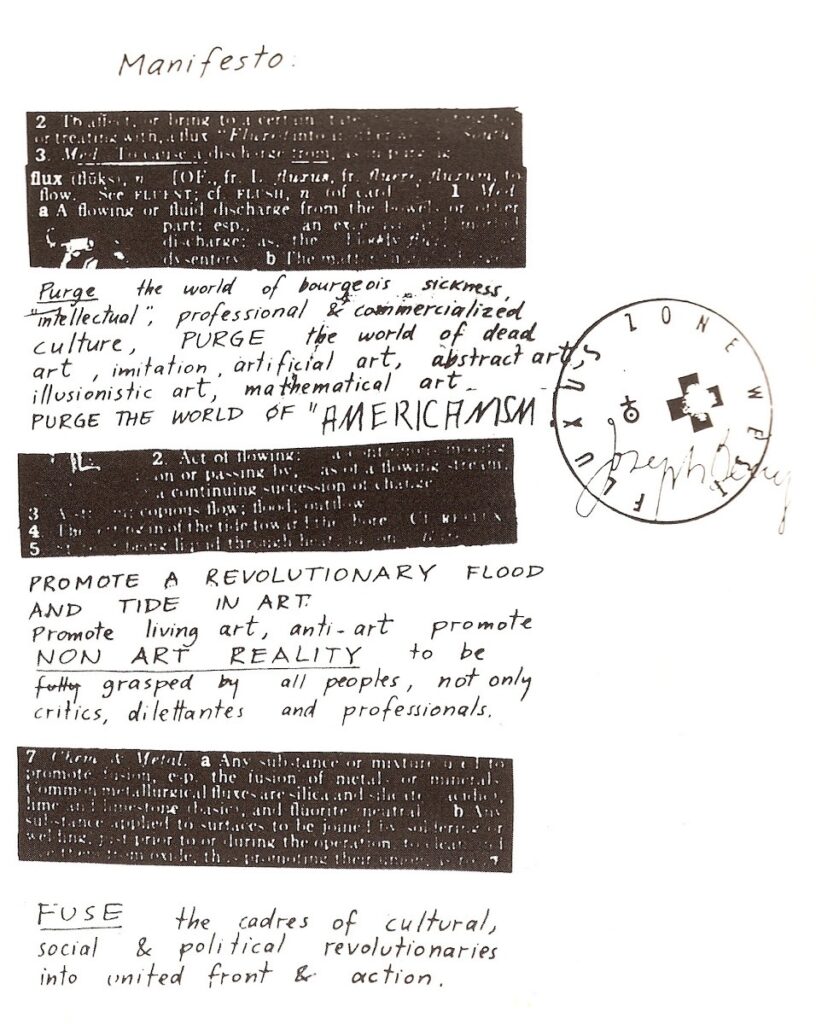 Manifesto:
2 To affect, or bring to a certain
or treating with, a flux "Fluxed into
3. Med. To cause a discharge from, as in
flux (flŭks), n. [OF., fr. L. fluxus, fr. fluere, fluxum, to
flow. See FLUENT; cf. FLUSH, n. (of card 1 Med.
a A flowing or fluid discharge from the bowel or other
part; esp., an
discharge; as, the bloody
dysentery. b The matter
Purge the world of bourgeois sickness,
"intellectual", professional & commercialized
culture, PURGE the world of dead
art, imitation, artificial art, abstract art,
illusionistic art, mathematical art -
PURGE THE WORLD OF "AMERICANISM".
FLUXUS ZONE WEST
Joseph Beuys
2. Act of flowing: a continuous moving
on or passing by, as of a flowing stream;
a continuing succession of change
3 copious flow; flood; outflow
4 The setting in of the tide toward the shore. Cf. REFLUX
5 being liquid through heat
PROMOTE A REVOLUTIONARY FLOOD
AND TIDE IN ART.
Promote living art, anti-art promote
NON ART REALITY to be
fully grasped by all peoples, not only
critics, dilettantes and professionals.
7 Chem. & Metal. a Any substance or mixture used to
promote fusion, esp. the fusion of metals or minerals.
Common metallurgical fluxes are silica and silicates (acidic),
lime and limestone (basic), and fluorite (neutral). b Any
substance applied to surfaces to be joined by soldering or
welding, just prior to or during the operation, to clean and
free them from oxide, thus promoting their union, as
FUSE the cadres of cultural,
social & political revolutionaries
into united front & action.